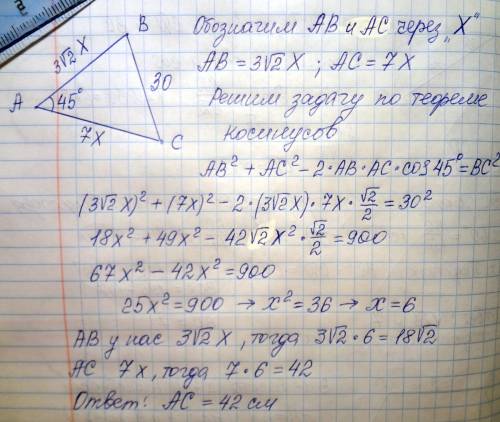 Обозначим AB и AC через „X"
AB = 3√2 X ; AC = 7X
Решим задачу по теореме
косинусов
AB² + AC² - 2·AB·AC·cos 45° = BC²
B
3√2 X
30
A
45°
7x
C
(3√2 X)² + (7x)² - 2·(3√2 X)·7x·√2/2 = 30²
18x² + 49x² - 42√2 x²·√2/2 = 900
67x² - 42x² = 900
25x² = 900 → x² = 36 → x = 6
AB у нас 3√2 X, тогда 3√2·6 = 18√2
AC 7x, тогда 7·6 = 42
Ответ: AC = 42 см